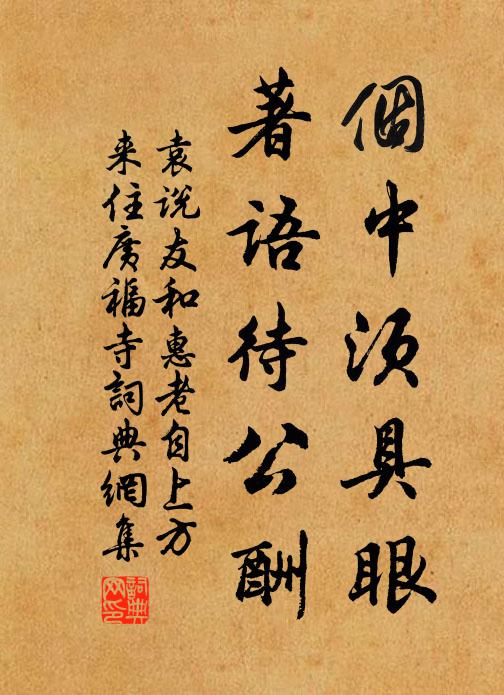 個中須具眼
著語待公酬
袁説友和惠老自上方
来住廣福寺詞典網集
詞典
网印